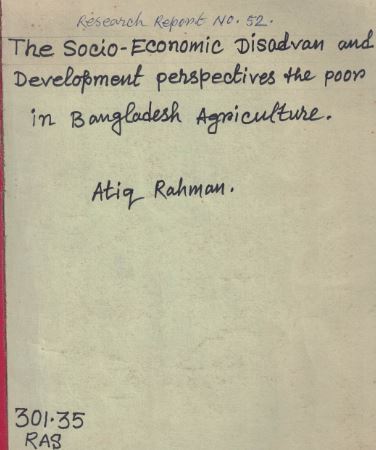 Research Report No. 52.
The Socio-Economic Disadvan and
Development perspectives the poor
in Bangladesh Agriculture.
Atiq Rahman.
301.35
RAS